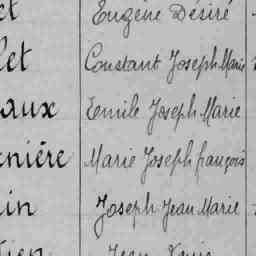 et Eugène Désiré
let Constant Joseph Marie
aux Emile Joseph Marie
enière Marie Joseph françois
in Joseph Jean Marie
tien Jean Louis